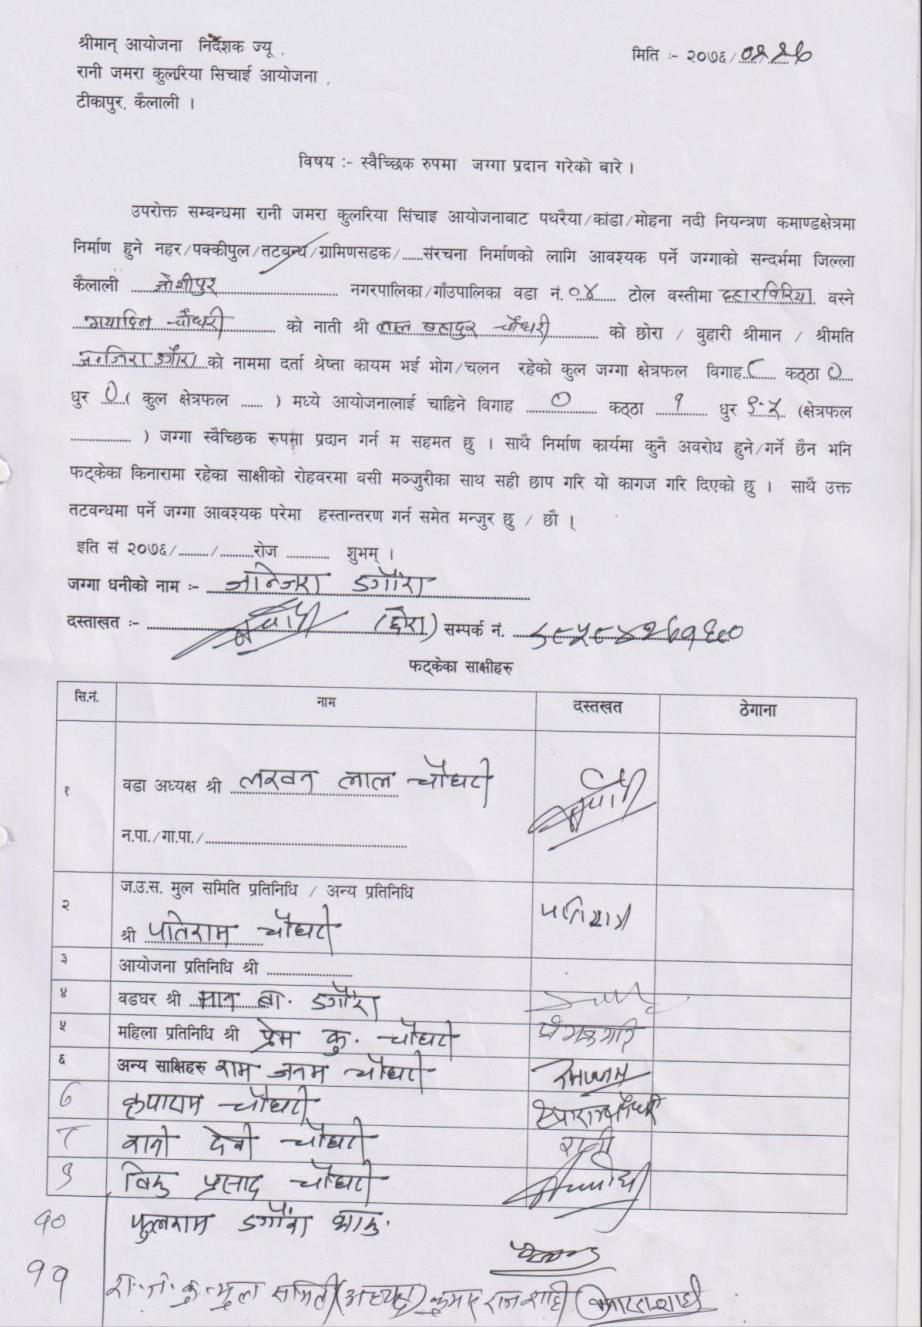 श्रीमान् आयोजना निर्देशक ज्यू ,
मिति :- २०७६/
रानी जमरा कुलरिया सिचाई आयोजना ,
टीकापुर, कैलाली ।
विषय :- स्वैच्छिक रुपमा जग्गा प्रदान गरेको बारे ।
उपरोक्त सम्बन्धमा रानी जमरा कुलरिया सिंचाइ आयोजनाबाट पथरैया/कांडा/मोहना नदी नियन्त्रण कमाण्डक्षेत्रमा
निर्माण हुने नहर/पक्कीपुल/तटबन्ध/ग्रामिणसडक/......संरचना निर्माणको लागि आवश्यक पर्ने जग्गाको सन्दर्भमा जिल्ला
कैलाली जोशीपुर नगरपालिका/गाँउपालिका वडा नं. ०४ टोल वस्तीमा बस्ने
गयादिन चौधरी को नाती श्री लाल बहादुर चौधरी को छोरा / बुहारी श्रीमान / श्रीमति
डगौरा को नाममा दर्ता श्रेष्ता कायम भई भोग/चलन रहेको कुल जग्गा क्षेत्रफल विगाह कठ्ठा ०
धुर ० ( कुल क्षेत्रफल ...... ) मध्ये आयोजनालाई चाहिने विगाह ० कठ्ठा १ धुर (क्षेत्रफल
.................. ) जग्गा स्वैच्छिक रुपमा प्रदान गर्न म सहमत छु । साथै निर्माण कार्यमा कुनै अवरोध हुने/गर्ने छैन भनि
फट्केका किनारामा रहेका साक्षीको रोहवरमा वसी मञ्जुरीका साथ सही छाप गरि यो कागज गरि दिएको छु । साथै उक्त
तटवन्धमा पर्ने जग्गा आवश्यक परेमा हस्तान्तरण गर्न समेत मन्जुर छु / छौ ।
इति सं २०७६/......../.........रोज ............ शुभम् ।
जग्गा धनीको नाम :- जान्जिरा डगौरा
दस्ताखत :- (छोरा) सम्पर्क नं.
फट्केका साक्षीहरु
सि.नं. नाम दस्तखत ठेगाना
१ वडा अध्यक्ष श्री लखन लाल चौधरी
न.पा./गा.पा./..................................................
२ ज.उ.स. मुल समिति प्रतिनिधि / अन्य प्रतिनिधि
श्री पतिराम चौधरी पतिराम
३ आयोजना प्रतिनिधि श्री .....................
४ वडघर श्री मान ब. डगौरा
५ महिला प्रतिनिधि श्री प्रेम कु. चौधरी
६ अन्य साक्षिहरु राम जनम चौधरी
७ कृपाराम चौधरी
८ देवी चौधरी
९ प्रसाद चौधरी
१० फुलराम डगौरा
११ रा.ज.कु. मुल समिति (अध्यक्ष) कुमार राज शाही